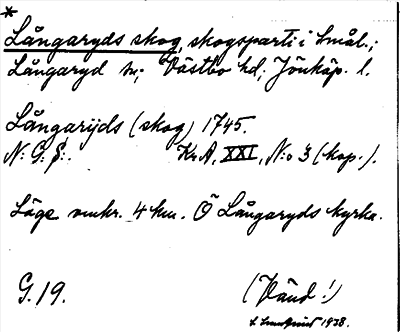 *
Långaryds skog, skogsparti i Smål.;
Långaryd sn; Västbo hd; Jönköp. l.
Långarÿds (skog) 1745.
N: G: S:. Kr. A. XXI, N:o 3 (kop.).
Läge omkr. 4 km. Ö Långaryds kyrka.
G. 19. (Vänd!)
1938.